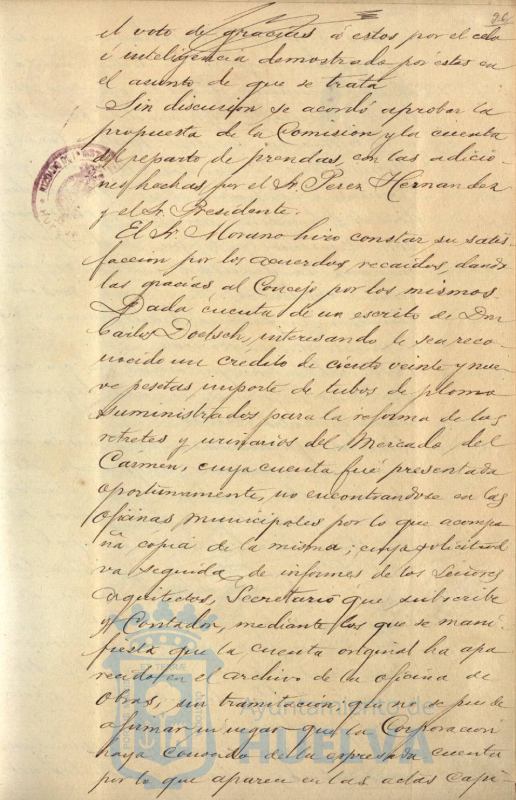 26
el voto de gracias á estos por el celo
é inteligencia demostrada por estos en
el asunto de que se trata
Sin discusion se acordó aprobar la
propuesta de la Comision y la cuenta
del reparto de prendas, con las adicio-
nes hechas por el Sr. Perez Hernandez
y el Sr. Presidente.
El Sr. Morano hizo constar su satis-
faccion por los acuerdos recaidos, dando
las gracias al Concejo por los mismos.
Dada cuenta de un escrito de Don
Carlos Doetsch, interesando le sea reco-
nocido un crédito de ciento veinte y nue-
ve pesetas, importe de tubos de plomo
suministrados para la reforma de los
retretes y urinarios del Mercado del
Carmen, cuya cuenta fué presentada
oportunamente, no encontrandose en las
Oficinas municipales por lo que acompa-
ña copia de la misma; cuya solicitud
va seguida de informes de los Señores
Arquitecto, Secretario que subscribe
y Contador, mediante los que se mani-
fiesta que la cuenta original ha apa-
recido en el archivo de la oficina de
Obras, sin tramitacion, que no se puede
afirmar ni negar que la Corporacion
haya conocido de la expresada cuenta
por lo que aparece en las actas capi-
Ayuntamiento de
HUELVA